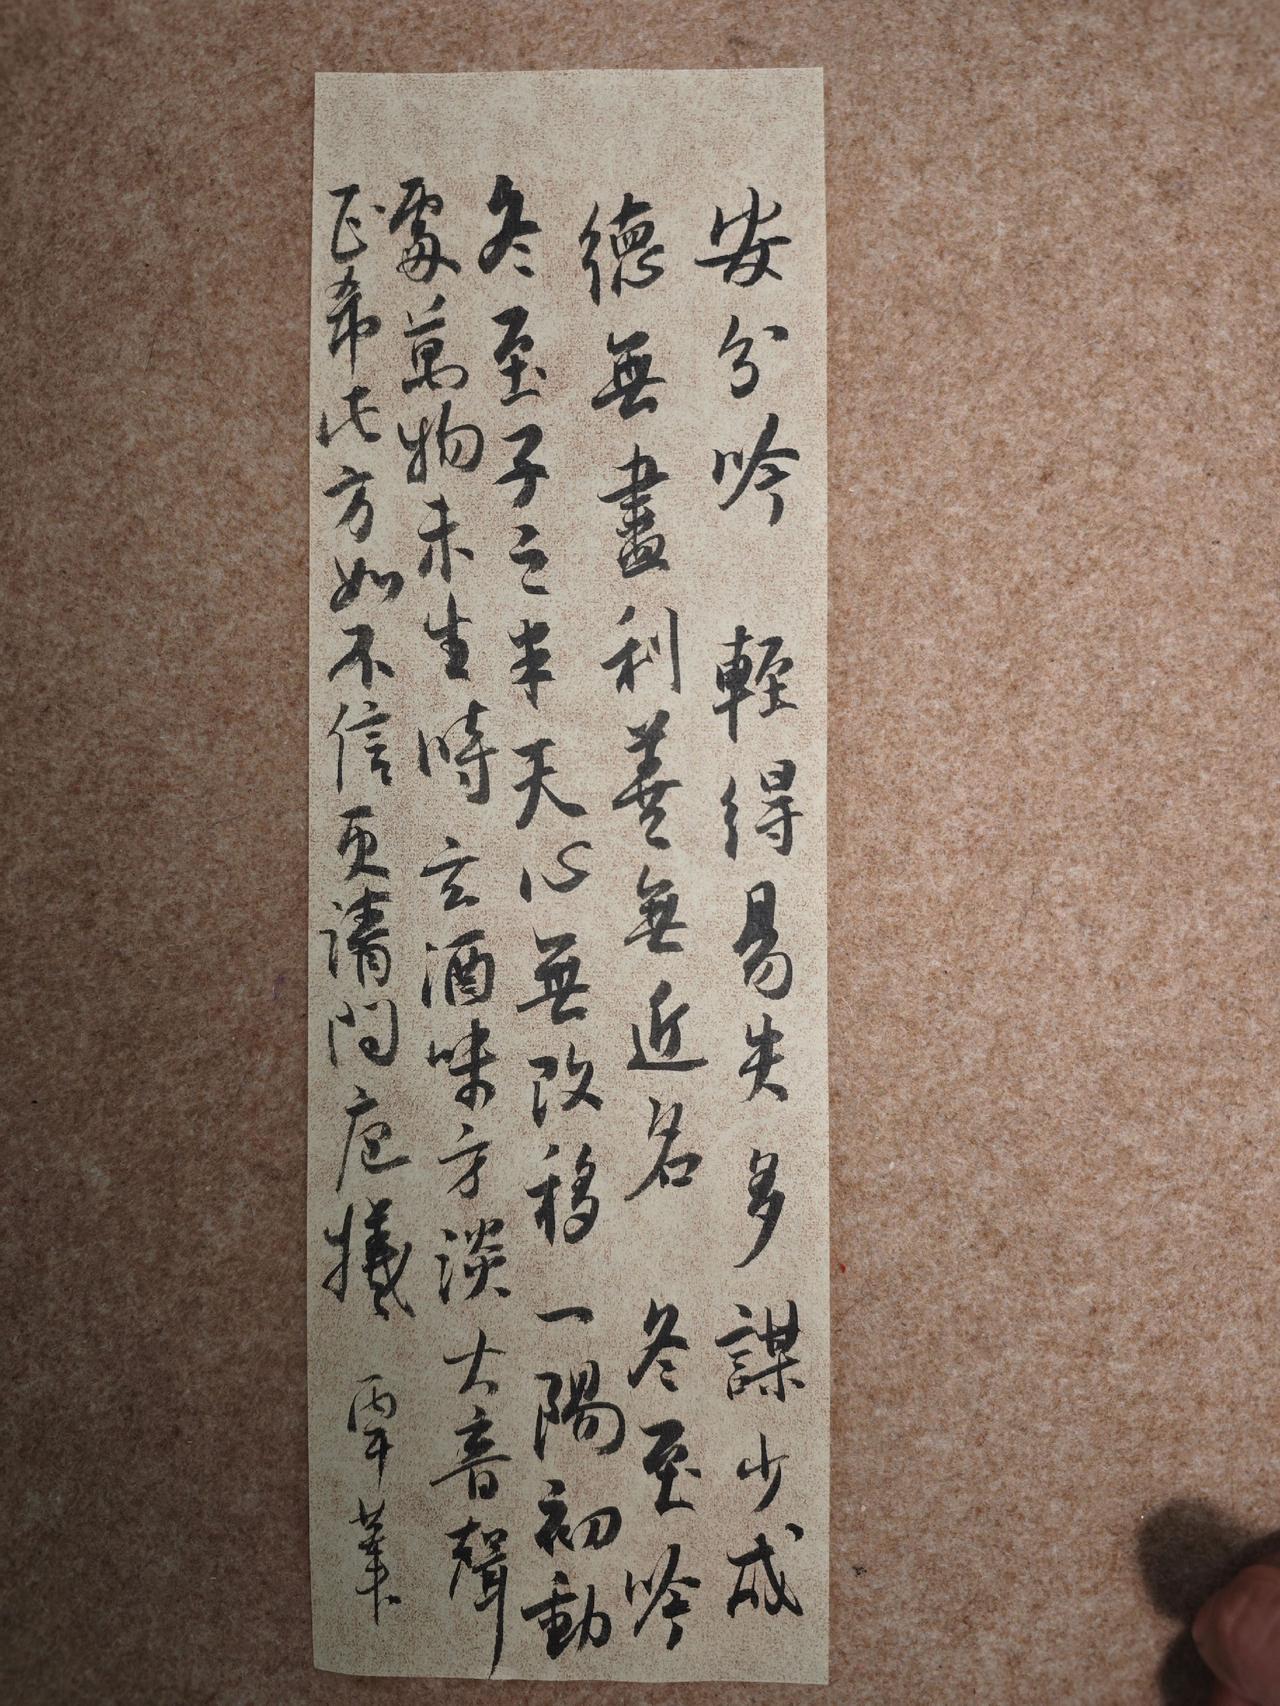 安分吟 輕得易失多謀少成
德無盡利善無近名 冬至吟
冬至子之半天心無改移一陽初動
處萬物未生時玄酒味方淡大音聲
正希此方如不信更請問庖犧 丙午 华